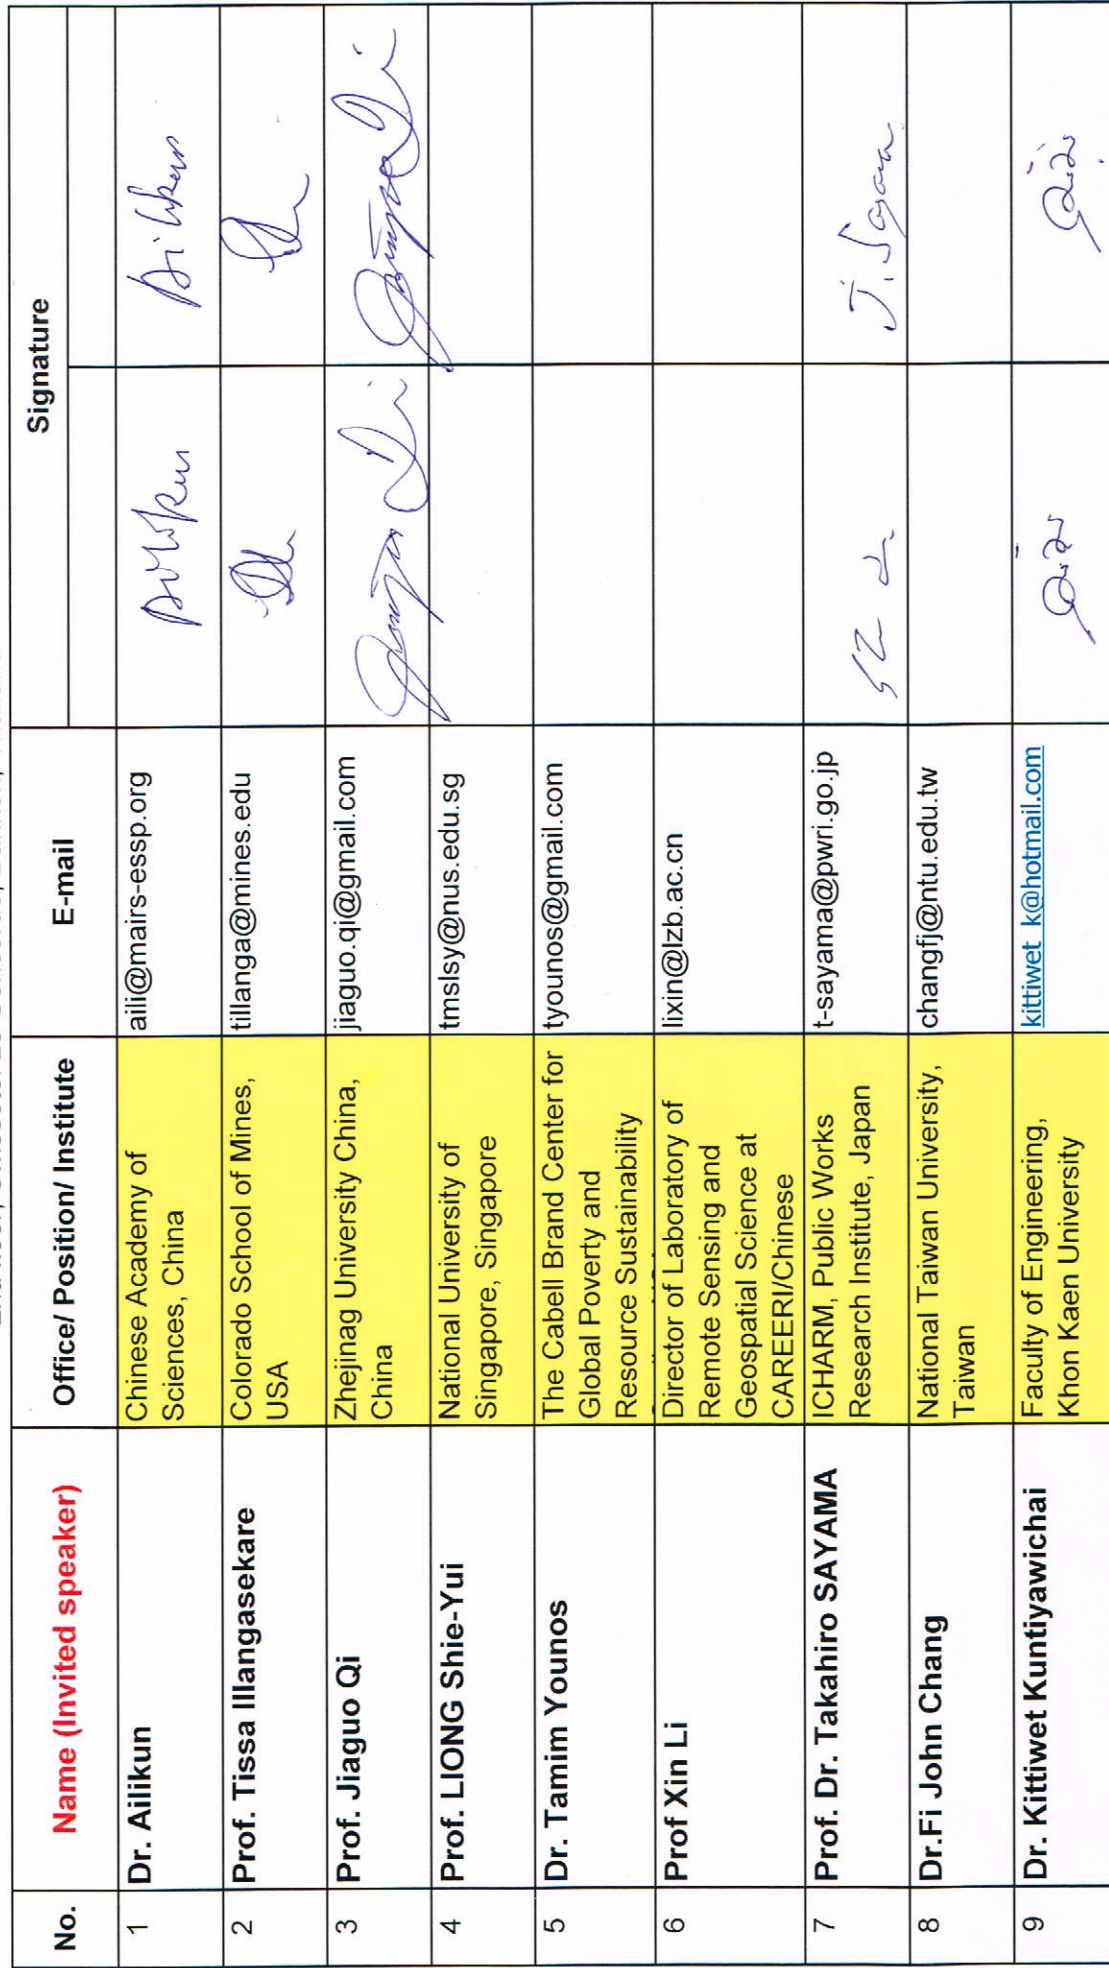 Signature
No.
Name (Invited speaker)
Office/ Position/ Institute
E-mail
1
Dr. Ailikun
Chinese Academy of
Sciences, China
aili@mairs-essp.org
Ailikun
Ailikun
2
Prof. Tissa Illangasekare
Colorado School of Mines,
USA
tillanga@mines.edu
3
Prof. Jiaguo Qi
Zhejinag University China,
China
jiaguo.qi@gmail.com
4
Prof. LIONG Shie-Yui
National University of
Singapore, Singapore
tmslsy@nus.edu.sg
5
Dr. Tamim Younos
The Cabell Brand Center for
Global Poverty and
Resource Sustainability
tyounos@gmail.com
6
Prof Xin Li
Director of Laboratory of
Remote Sensing and
Geospatial Science at
CAREERI/Chinese
lixin@lzb.ac.cn
7
Prof. Dr. Takahiro SAYAMA
ICHARM, Public Works
Research Institute, Japan
t-sayama@pwri.go.jp
T. Sayama
8
Dr.Fi John Chang
National Taiwan University,
Taiwan
changfj@ntu.edu.tw
9
Dr. Kittiwet Kuntiyawichai
Faculty of Engineering,
Khon Kaen University
kittiwet_k@hotmail.com